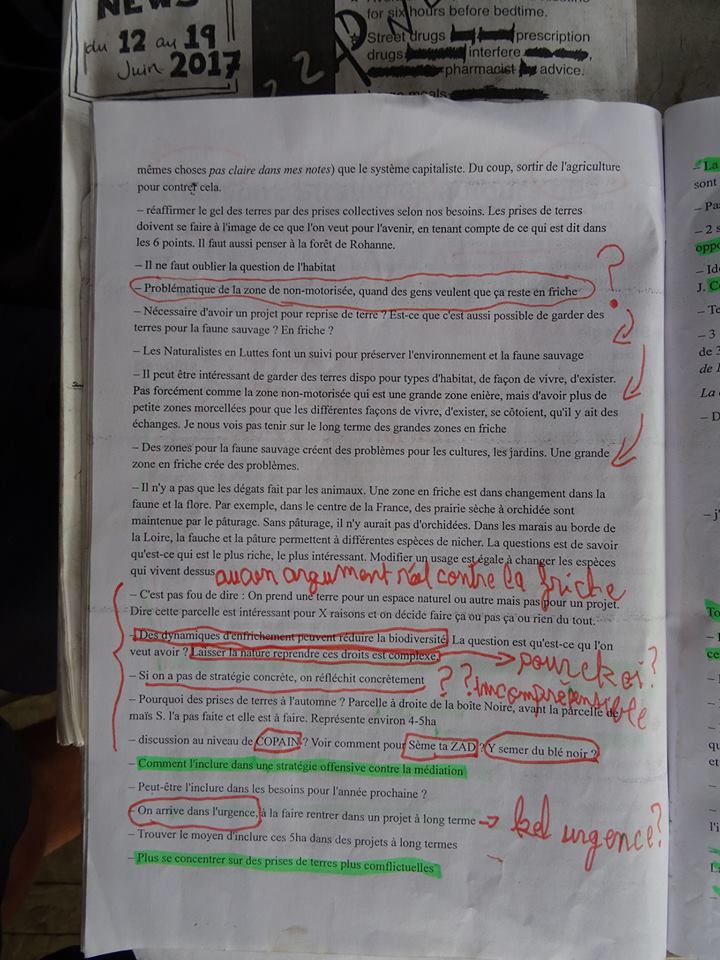 NEWS
du 12 au 19
Juin 2017
2
2
for six hours before bedtime.
Street drugs prescription
drugs interfere
pharmacist advice.
meals
mêmes choses pas claire dans mes notes) que le système capitaliste. Du coup, sortir de l'agriculture
pour contrer cela.
– réaffirmer le gel des terres par des prises collectives selon nos besoins. Les prises de terres
doivent se faire à l'image de ce que l'on veut pour l'avenir, en tenant compte de ce qui est dit dans
les 6 points. Il faut aussi penser à la forêt de Rohanne.
– Il ne faut oublier la question de l'habitat
– Problématique de la zone de non-motorisée, quand des gens veulent que ça reste en friche
?
– Nécessaire d'avoir un projet pour reprise de terre ? Est-ce que c'est aussi possible de garder des
terres pour la faune sauvage ? En friche ?
– Les Naturalistes en Luttes font un suivi pour préserver l'environnement et la faune sauvage
– Il peut être intéressant de garder des terres dispo pour types d'habitat, de façon de vivre, d'exister.
Pas forcément comme la zone non-motorisée qui est une grande zone enière, mais d'avoir plus de
petite zones morcellées pour que les différentes façons de vivre, d'exister, se côtoient, qu'il y ait des
échanges. Je nous vois pas tenir sur le long terme des grandes zones en friche
– Des zones pour la faune sauvage créent des problèmes pour les cultures, les jardins. Une grande
zone en friche crée des problèmes.
– Il n'y a pas que les dégats fait par les animaux. Une zone en friche est dans changement dans la
faune et la flore. Par exemple, dans le centre de la France, des prairie sèche à orchidée sont
maintenue par le pâturage. Sans pâturage, il n'y aurait pas d'orchidées. Dans les marais au borde de
la Loire, la fauche et la pâture permettent à différentes espèces de nicher. La questions est de savoir
qu'est-ce qui est le plus riche, le plus intéressant. Modifier un usage est égale à changer les espèces
qui vivent dessus
aucun argument réel contre la friche
– C'est pas fou de dire : On prend une terre pour un espace naturel ou autre mais pas pour un projet.
Dire cette parcelle est intéressant pour X raisons et on décide faire ça ou pas ça ou rien du tout.
– Des dynamiques d'enfrichement peuvent réduire la biodiversité. La question est qu'est-ce qu l'on
veut avoir ? Laisser la nature reprendre ces droits est complexe.
pourckoi?
– Si on a pas de stratégie concrète, on réfléchit concrètement
? ? incompréensible
– Pourquoi des prises de terres à l'automne ? Parcelle à droite de la boîte Noire, avant la parcelle de
maïs S. l'a pas faite et elle est à faire. Représente environ 4-5ha
– discussion au niveau de COPAIN ? Voir comment pour Sème ta ZAD ? Y semer du blé noir ?
– Comment l'inclure dans une stratégie offensive contre la médiation
– Peut-être l'inclure dans les besoins pour l'année prochaine ?
– On arrive dans l'urgence, à la faire rentrer dans un projet à long terme
kel urgence?
– Trouver le moyen d'inclure ces 5ha dans des projets à long termes
– Plus se concentrer sur des prises de terres plus comflictuelles
– La
sont
– Pa
– 2 s
oppo
– Id
J. C
– Te
– 3
de 3
de l
La
– D
– j'
To
ce
qu
et
l'i